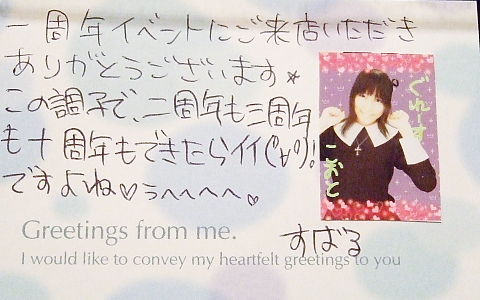 一周年イベントにご来店いただき
ありがとうございます★
この調子で、二周年も三周年
も十周年もできたらイイ(°∀°)!
ですよね♡うへへへへ♡
ぐれーす
こおと
すばる
Greetings from me.
I would like to convey my heartfelt greetings to you